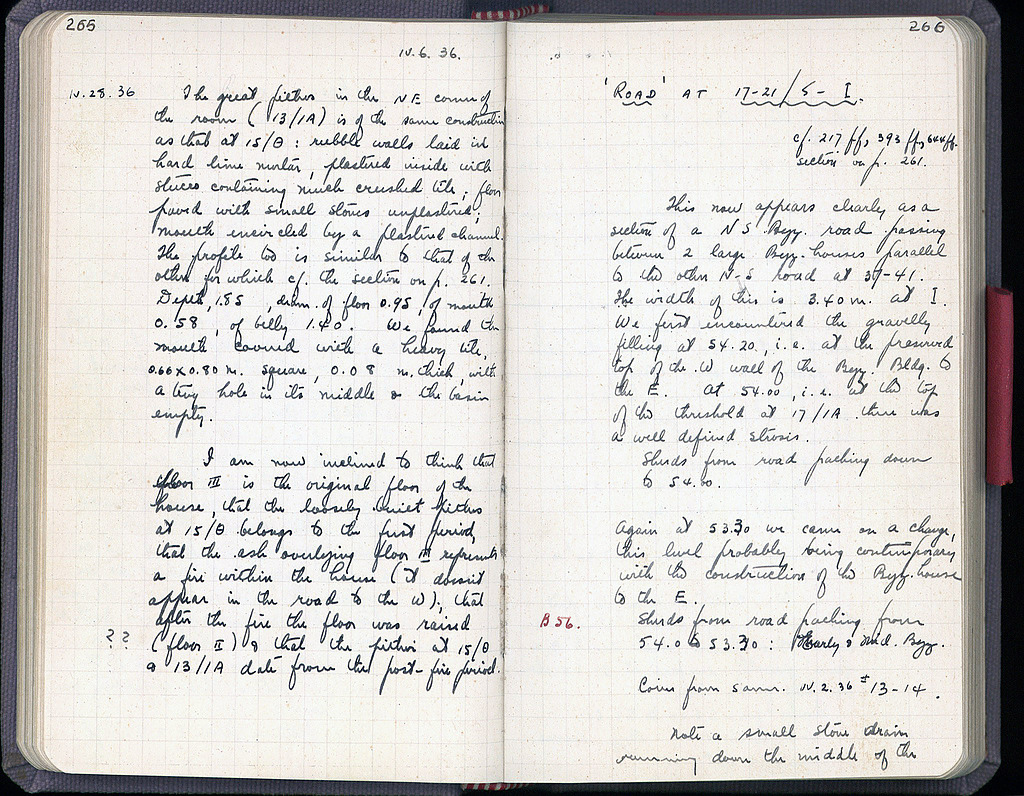 265
IV. 6. 36.
IV. 28. 36 The great pithos in the NE corner of
the room (13/IA) is of the same construction
as that at 15/Θ : rubble walls laid in
hard lime mortar, plastered inside with
stucco containing much crushed tile; floor
paved with small stones unplastered;
mouth encircled by a plastered channel.
The profile too is similar to that of the
other for which cf. the section on p. 261.
Depth, 1.85, diam. of floor 0.95, of mouth
0.58, of belly 1.40. We found the
mouth covered with a heavy tile,
0.66 x 0.80 m. square, 0.08 m. thick, with
a tiny hole in its middle & the basin
empty.
I am now inclined to think that
floor III is the original floor of the
house, that the loosely built pithos
at 15/Θ belongs to the first period,
that the ash overlying floor III represents
a fire within the house (it doesn't
appear in the road to the W), that
after the fire the floor was raised
?? (floor II) & that the pithoi at 15/Θ
& 13/IA date from the post-fire period.
266
'ROAD' AT 17-21/5 - I.
cf. 217 ff, 393 ff, 644 ff.
section on p. 261.
This now appears clearly as a
section of a NS Byz. road passing
between 2 large Byz. houses parallel
to the other N-S road at 37-41.
The width of this is 3.40 m. at I.
We first encountered the gravelly
filling at 54.20, i.e. at the preserved
top of the W wall of the Byz. Bldg. to
the E. At 54.00, i.e. at the top
of the threshold at 17/IA there was
a well defined strosis.
Sherds from road packing down
to 54.00.
Again at 53.30 we came on a change,
this level probably being contemporary
with the construction of the Byz. house
to the E.
B 56. Sherds from road packing from
54.0 to 53.30 : Early & Mid. Byz.
Coins from same. IV. 2. 36 # 13-14.
Note a small stone drain
running down the middle of the